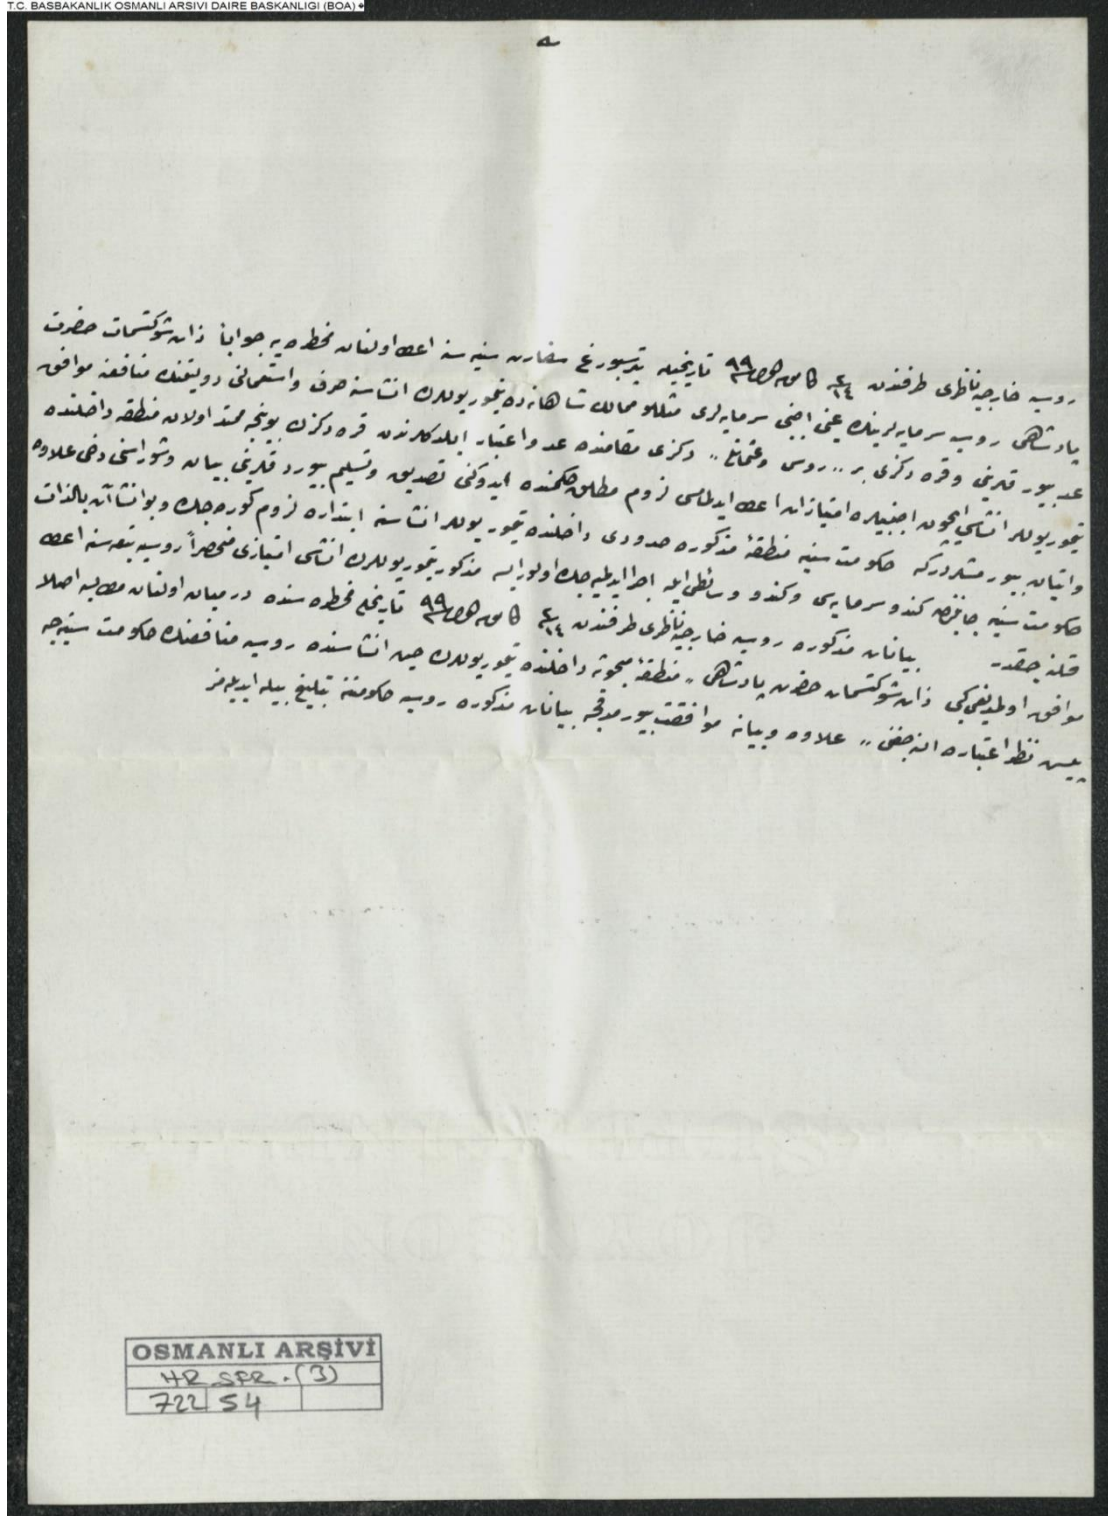 T.C. BASBAKANLIK OSMANLI ARSIVI DAIRE BASKANLIGI (BOA)
روسیه خارجیه ناظری طرفندن ٢/١٤ تاریخیله پترسبورغ سفارت سنیه سنه اعطا اولنان مخطره یه جواباً ذات شوکتسمات حضرت
پادشاهی روسیه سرمایه لرینك عینی اجنبی سرمایه لری مثللو ممالك شاهانه ده تیمور یوللرك انشاسنه صرف و استعمالنی دولتینك منافعنه موافق
عد بیورمدقلرینی و قره دکزی بر ,, روسی و عثمانلی ,, دکزی مقامنده عد و اعتبار ایلدکلرندن قره دکزك بوینجه ممتد اولان منطقه داخلنده
تیمور یوللر انشاسی ایچون اجنبیلره امتیازات اعطا ایدلمامسی لزوم مطلق حکمنده ایدوکنی تصدیق و تسلیم بیوردقلرینی بیان و شوراسنی دخی علاوه
و اتیان بیورمشلردرکه حکومت سنیه منطقهٔ مذکوره حدودی داخلنده تیمور یوللر انشاسنه ابتداره لزوم کوره جك و بو انشاآت بالذات
حکومت سنیه جانبندن کندو سرمایه سی و کندو وسائطی ایله اجرا ایدیلمیه جك اولور ایسه مذکور تیمور یوللرك انشاسی امتیازی منحصراً روسیه تبعه سنه اعطا
قلنه جقدر
بیانات مذکوره روسیه خارجیه ناظری طرفندن ٢/١٤ تاریخلی مخطره سنده درمیان اولنان مطالبه اصلا
موافق اولمدیغی کبی ذات شوکتسمات حضرت پادشاهی ,, منطقهٔ مبحوثه داخلنده تیمور یوللرك حین انشاسنده روسیه منافعنك حکومت سنیه جه
پیش نظر اعتباره النه جغنی ,, علاوه و بیانه موافقت بیورمدقجه بیانات مذکوره روسیه حکومتنه تبلیغ بیله ایدیله مز
OSMANLI ARŞİVİ
HR.SFR.(3)
722 54